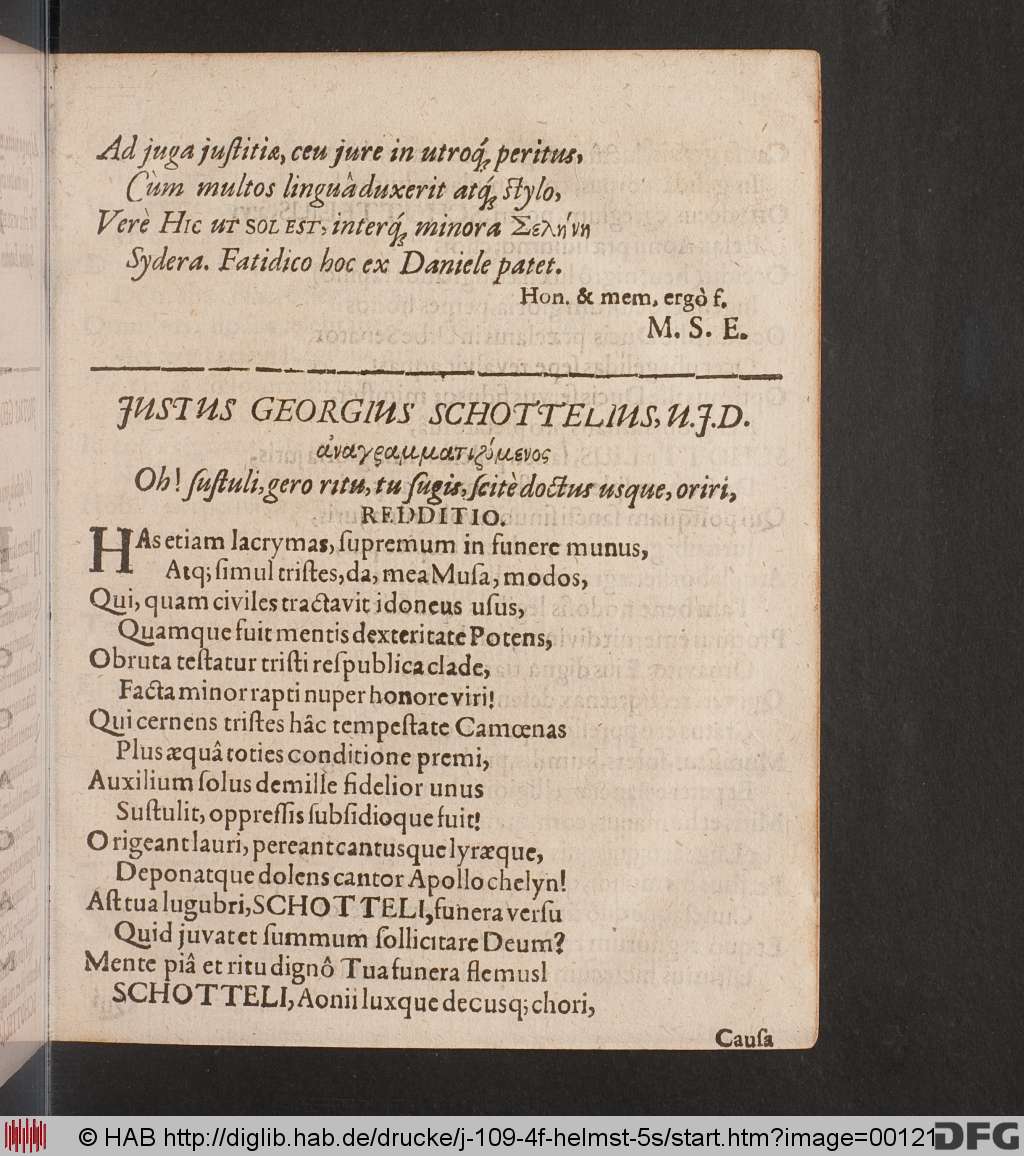 Ad juga juſtitiæ, ceu jure in utroq́; peritus,
Cùm multos linguâ duxerit atq́; ſtylo,
Verè HIC UT SOL EST, interq́; minora Σελήνη
Sydera. Fatidico hoc ex Daniele patet.
Hon. & mem, ergò f.
M. S. E.
JUSTUS GEORGIUS SCHOTTELIUS, U.J.D.
ἀναγραμματιζόμενος
Oh! ſuſtuli, gero ritu, tu ſugis, ſcitè doctus usque, oriri,
REDDITIO.
HAs etiam lacrymas, ſupremum in funere munus,
Atq; ſimul triſtes, da, mea Muſa, modos,
Qui, quam civiles tractavit idoneus uſus,
Quamque fuit mentis dexteritate Potens,
Obruta teſtatur triſti reſpublica clade,
Facta minor rapti nuper honore viri!
Qui cernens triſtes hâc tempeſtate Camœnas
Plus æquâ toties conditione premi,
Auxilium ſolus de mille fidelior unus
Suſtulit, oppreſſis ſubſidioque fuit!
O rigeant lauri, pereant cantusque lyræque,
Deponatque dolens cantor Apollo chelyn!
Aſt tua lugubri, SCHOTTELI, funera verſu
Quid juvat et ſummum ſollicitare Deum?
Mente piâ et ritu dignô Tua funera flemus!
SCHOTTELI, Aonii luxque decusq; chori,
Cauſa
© HAB http://diglib.hab.de/drucke/j-109-4f-helmst-5s/start.htm?image=00121
DFG